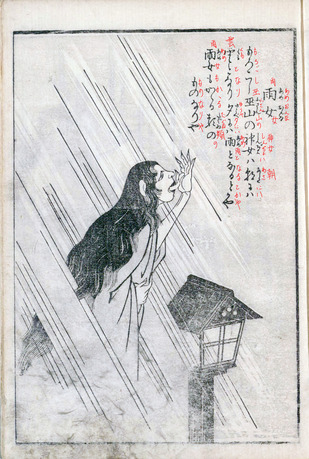 雨女
もろこし巫山の神女ハ朝にハ
雲となり夕にハ雨となるとかや
雨女もかゝる類の
ものなりや